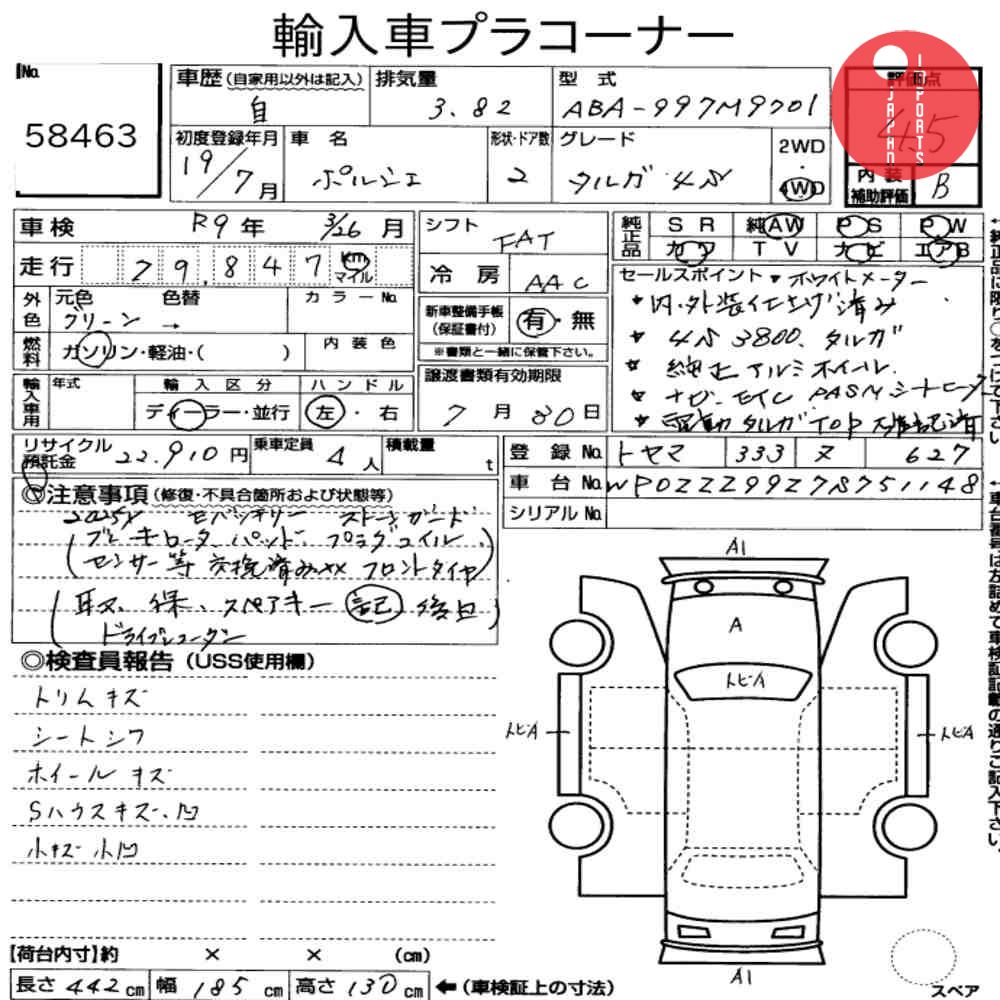 輸入車プラコーナー
No.
58463
車歴(自家用以外は記入)
自
排気量
3.82
型 式
ABA-997M9701
評価点
4.5
JAPAN IMPORTS
初度登録年月
19/7月
車 名
ポルシェ
形状・ドア数
2
グレード
タルガ 4S
2WD
・
4WD
内 装
補助評価
B
車検 R9年 3/26月
走行 29,847 km
マイル
外色
元色 色替
グリーン →
カラーNo.
燃料
ガソリン・軽油・( )
内 装 色
輸入車用
年式
輸 入 区 分
ディーラー・並行
ハ ン ド ル
左・右
シフト
FAT
冷 房
AAC
新車整備手帳
(保証書付)
有・無
※書類と一緒に保管下さい。
譲渡書類有効期限
7月30日
純正品
SR 純AW PS PW
カワ TV ナビ エアB
セールスポイント ・ホワイトメーター
・内・外装仕上げ済み
★ 4S 3800. タルガ
★ 純正アルミホイール.
★ ナビ PASM シートヒーター
★ 電動タルガTOP
リサイクル
預託金
22.910円
乗車定員
4人
積載量
t
登 録 No. トヤマ 333 ヌ 627
車 台 No. WP0ZZZ99Z7S751148
シリアル No.
◎注意事項(修復・不具合箇所および状態等)
2025Y バッテリー ストーンガード
(ブレーキローター. パット. プラグコイル
センサー等 交換済み フロントタイヤ)
(取. 保. スペアキー (記) 後日)
ドライブレコーダー
◎検査員報告(USS使用欄)
トリムキズ
シートシワ
ホイールキズ
Sハウスキズ.凹
小キズ小凹
A1
A
トビA
トビA
トビA
A1
スペア
【荷台内寸】約 × × (cm)
長さ 442cm 幅 185cm 高さ 130cm ←(車検証上の寸法)